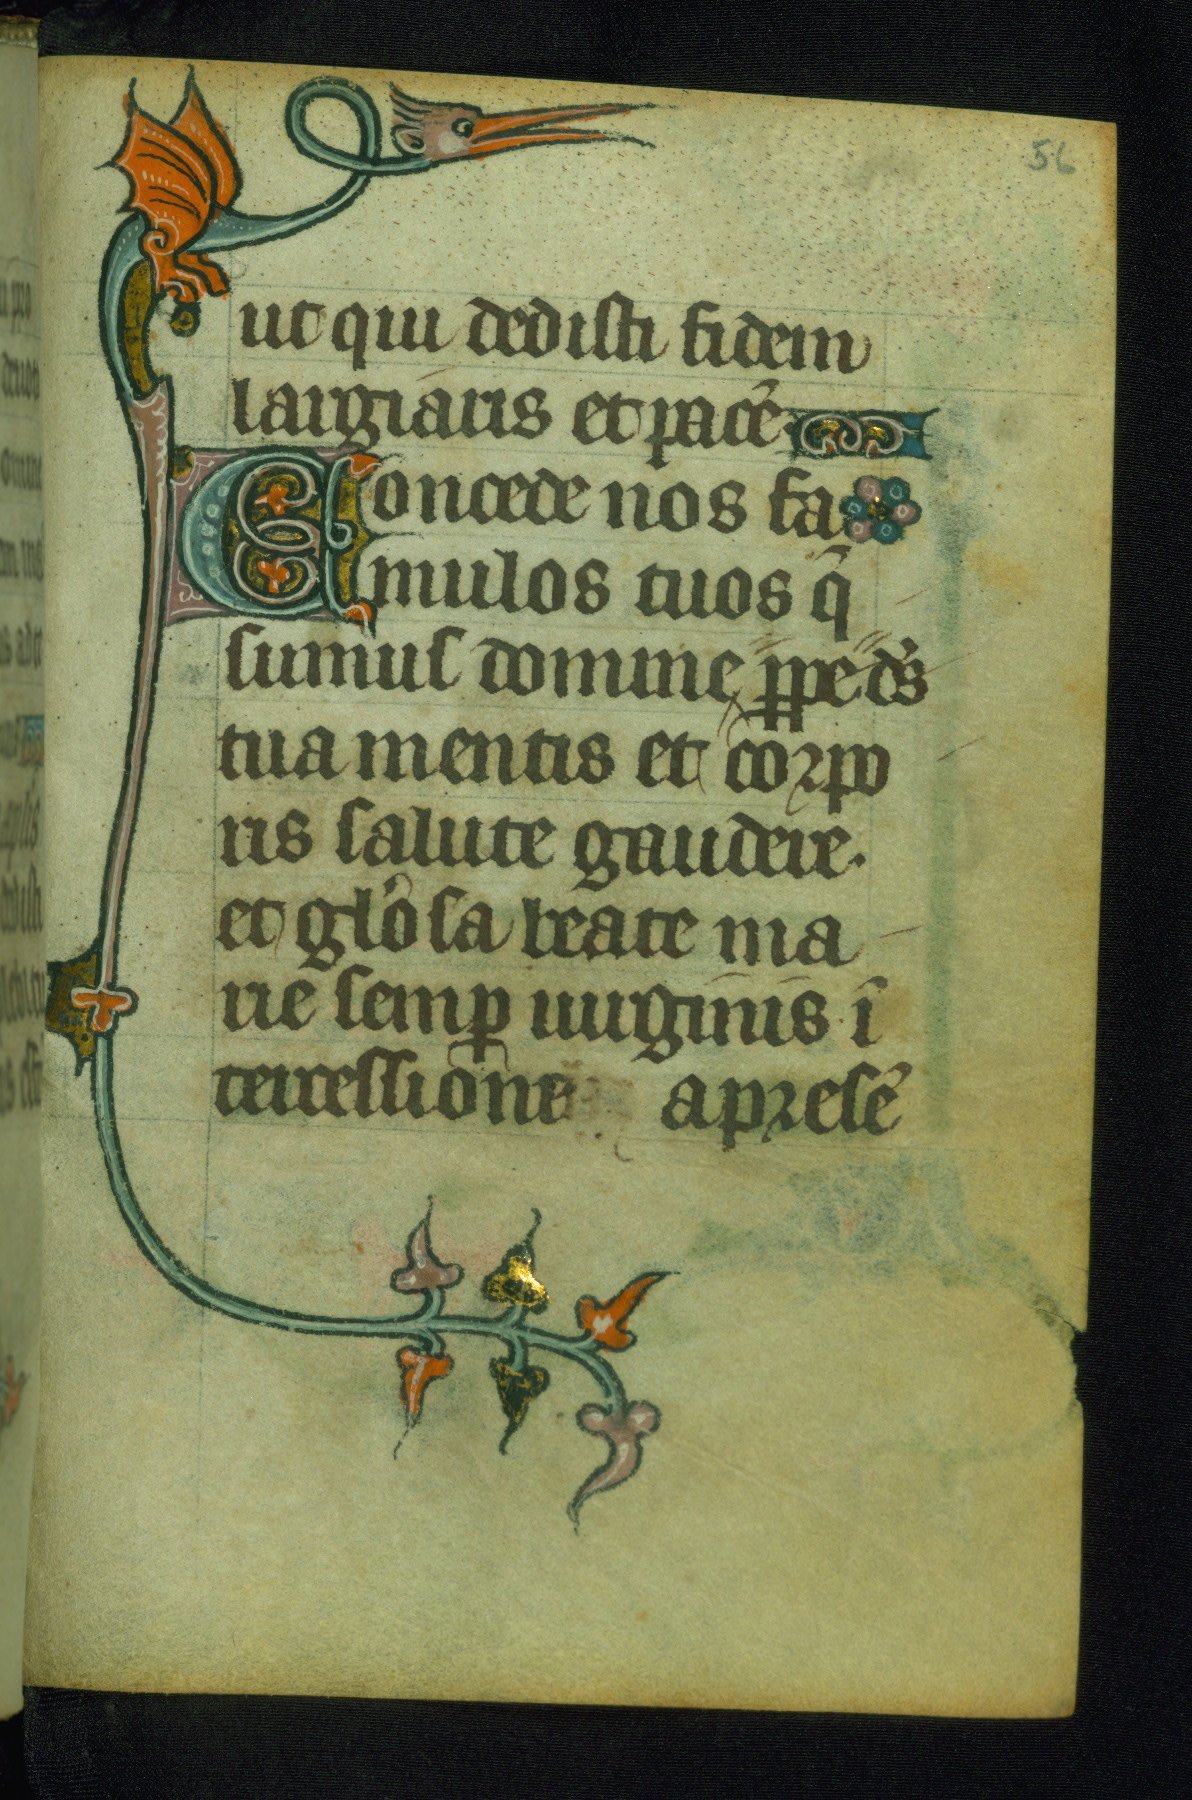 56
ut qui dedisti fidem
largiaris et pacē
Concede nos fa
mulos tuos q̄
sumus domine ꝑpe ds̄
tua mentis et corpo
ris salute gaudere.
et glōsa beate ma
rie semꝑ uirginis ī
tercessione a presē